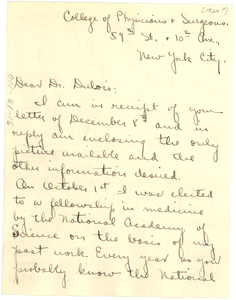 [1920?]
College of Physicians & Surgeons.
59th St. & 10th Ave.,
New York City.
Dear Dr. Dubois:
I am in receipt of your
letter of December 8th and in
reply am enclosing the only
picture available and the
other information desired.
On October 1st I was elected
to a fellowship in medicine
by the National Academy of
Science on the basis of my
past work. Every year as you
probably know the National